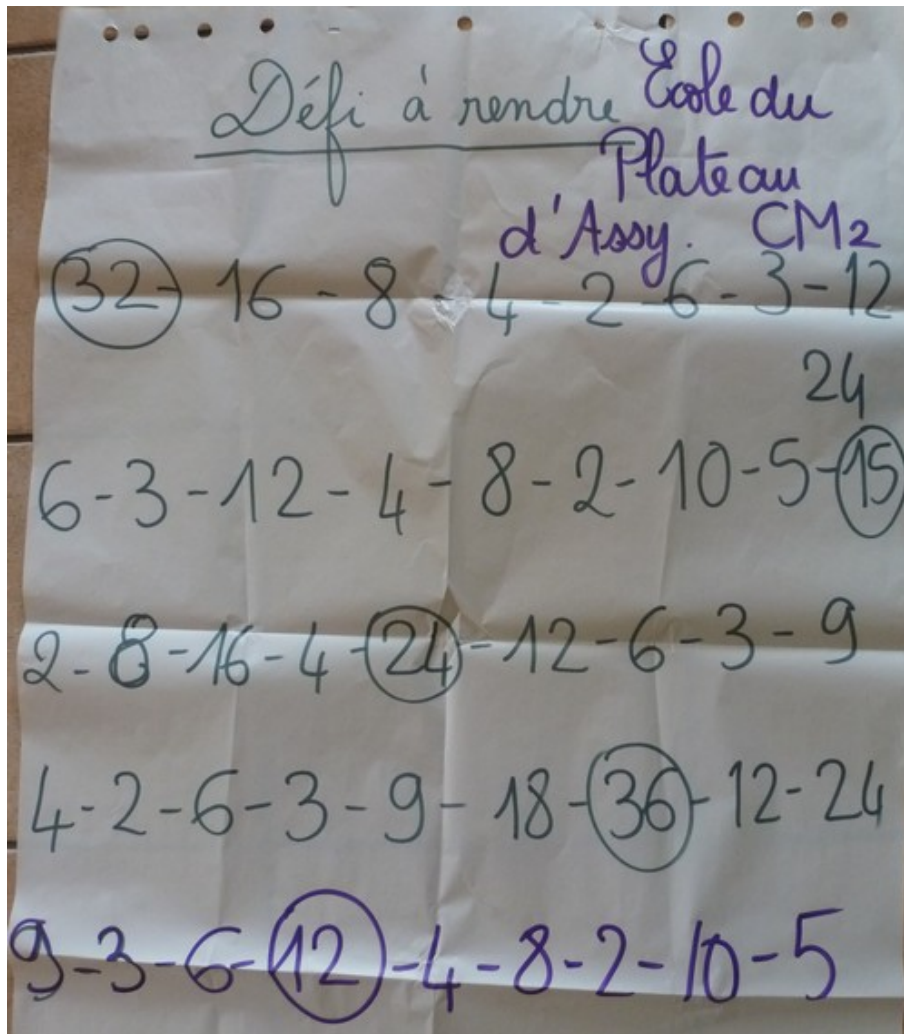 Défi à rendre Ecole du
Plateau
d'Assy. CM2
32 - 16 - 8 - 4 - 2 - 6 - 3 - 12
24
6 - 3 - 12 - 4 - 8 - 2 - 10 - 5 - 15
2 - 8 - 16 - 4 - 24 - 12 - 6 - 3 - 9
4 - 2 - 6 - 3 - 9 - 18 - 36 - 12 - 24
9 - 3 - 6 - 12 - 4 - 8 - 2 - 10 - 5